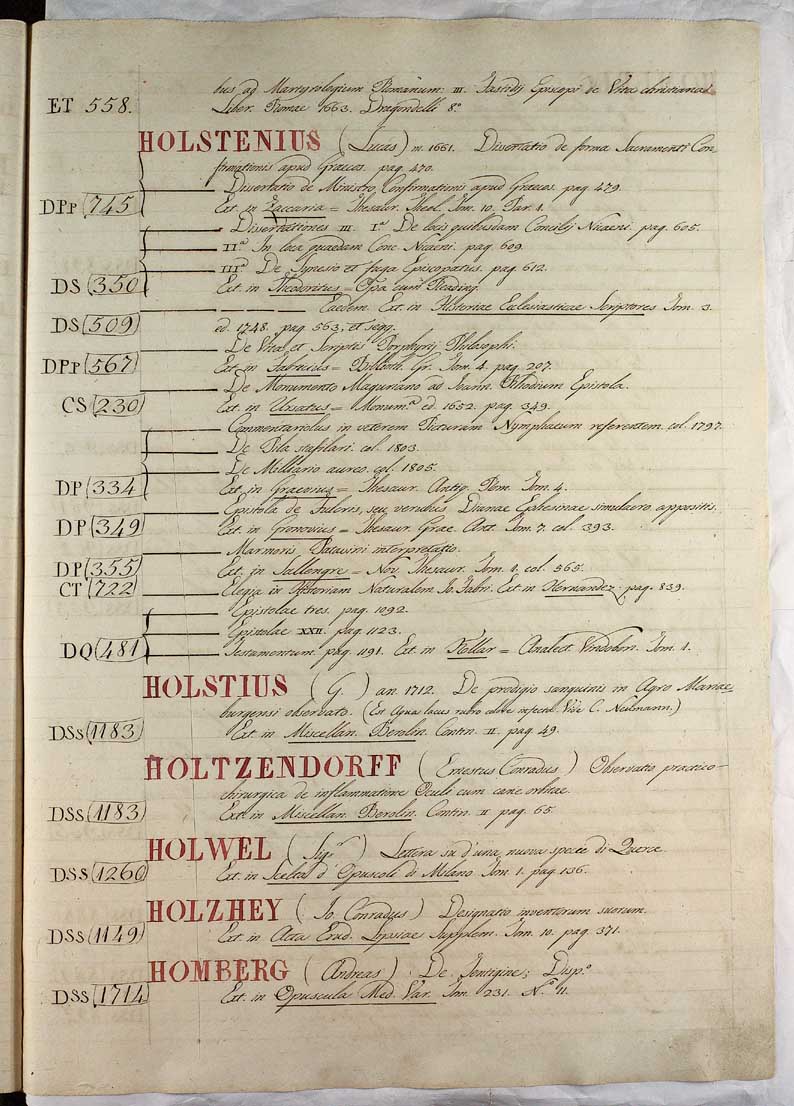 bus ad Martyrologium Romanum: III. Fastidij Episcopi de Vita christiana
ET 558. Liber. Romae 1663. Dragondelli 8.º
HOLSTENIUS (Lucas) m. 1661. Dissertatio de forma Sacramenti Con
firmationis apud Graecos. pag. 470.
Dissertatio de Ministro Confirmationis apud Graecos. pag. 479.
DPp (745) Ext. in Zaccaria = Thesaur. Theol. Tom. 10. Par. 1.
Dissertationes III. I.ª De locis quibusdam Concilij Nicaeni. pag. 605.
II.ª In loca quaedam Conc. Nicaeni. pag. 609.
III.ª De Synesio et fuga Episcopatus. pag. 612.
DS (350) Ext. in Theodoritus = Opã cum Reading.
Eaedem. Ext. in Historiae Ecclesiasticae Scriptores Tom. 3.
DS (509) ed. 1748. pag. 563, et segg.
De Vita, et Scriptis Porphyrij Philosophi.
DPp (567) Ext. in Fabricius = Biblioth. Gr. Tom. 4. pag. 207.
De Monumento Maguriano ad Joann. Rhodium Epistola.
CS (230) Ext. in Ursatus = Monum.ª ed. 1652. pag. 349.
Commentariolus in veterem Picturam Nymphaeum referentem. col. 1797.
De Pila stafilari. col. 1803.
De Milliario aureo. col. 1805.
DP (334) Ext. in Graevius = Thesaur. Antiq. Rom. Tom. 4.
Epistola de Fulcris, seu verubus Dianae Ephesinae simulacro appositis.
DP (349) Ext. in Gronovius = Thesaur. Grae. Antt. Tom. 7. col. 393.
Marmoris Patavini interpretatio.
DP (355) Ext. in Sallengre = Nov. Thesaur. Tom. 1. col. 565.
CT (722) Elegia in Historiam Naturalem Jo. Fabri. Ext. in Hernandez. pag. 839.
Epistolae tres. pag. 1092.
Epistolae XXII. pag. 1123.
DQ (481) Testamentum. pag. 1191. Ext. in Kollar = Analect. Vindobon. Tom. 1.
HOLSTIUS (G.) an. 1712. De prodigio sanguinis in Agro Mariae
burgensi observato. (En Aqua lacus rubro colore infecta. Vide C. Neumann.)
DSs (1183) Ext. in Miscellan. Berolin. Contin. II. pag. 49.
HOLTZENDORFF (Ernestus Conradus) Observatio practico-
chirurgica de inflammatione Oculi cum carie orbitae.
DSs (1183) Ext. in Miscellan. Berolin. Contin. II pag. 65.
HOLWEL (Sig.r) Lettera su d'una nuova specie di Querce.
DSS (1260) Ext. in Scelta d'Opuscoli di Milano Tom. 1. pag. 136.
HOLZHEY (Jo. Conradus) Designatio inventorum suorum.
DSs (1149) Ext. in Acta Erud. Lipsiae Supplem. Tom. 10. pag. 371.
HOMBERG (Andreas). De Disp.º
DSs (1714) Ext. in Opuscula Med. Var. Tom. 231. N.º 11.